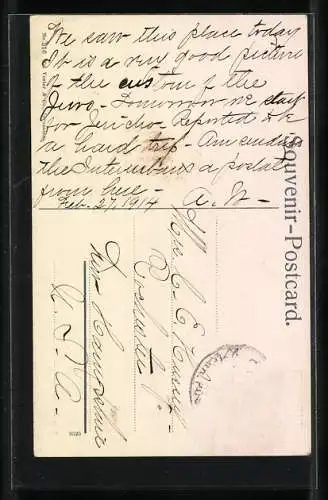 We saw this place today
It is a very good picture
of the custom of the
Jews - Tomorrow we start
for Jericho - Reported to be
a hard trip - Am sending
the a postal
from here -
Feb. 27, 1914 A. W -
Souvenir-Postcard.
C. E.
Rochester
New Hampshire
U. S. A -